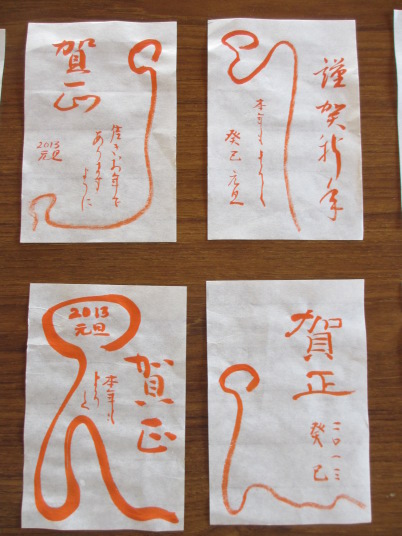 賀正
佳きお年で
ありますように
2013
元旦
謹賀新年
本年もよろしく
癸巳 元旦
2013
元旦
賀正
本年も
よろしく
賀正
二〇一三
癸巳